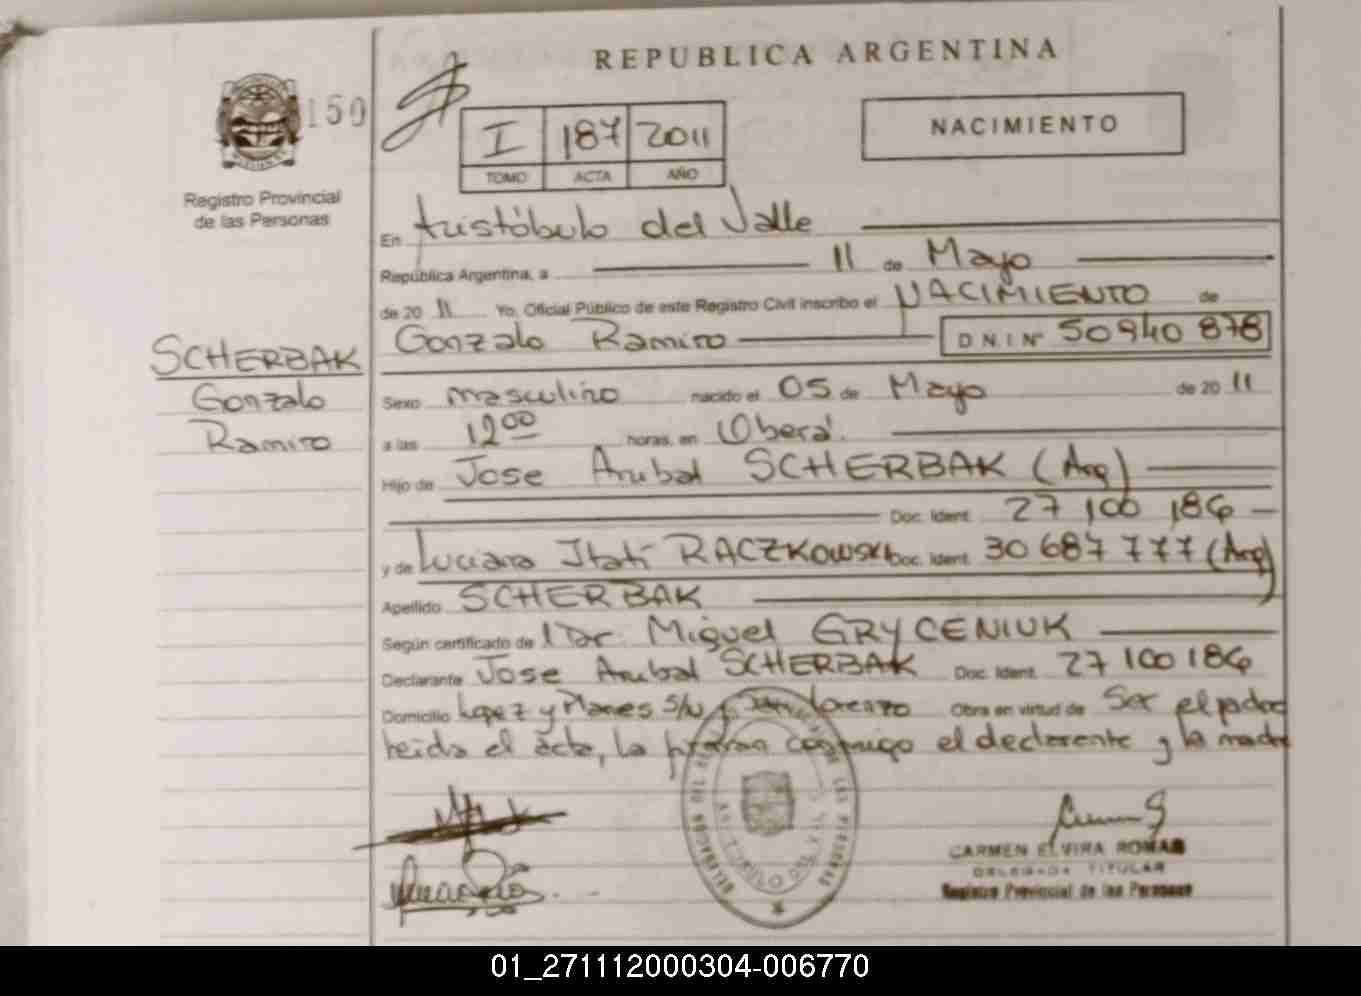 REPUBLICA ARGENTINA
150
I 187 2011
TOMO ACTA AÑO
NACIMIENTO
Registro Provincial
de las Personas
En Aristóbulo del Valle
República Argentina, a 11 de Mayo
de 20 11 Yo, Oficial Público de este Registro Civil inscribo el NACIMIENTO de
Gonzalo Ramiro DNI Nº 50940 878
SCHERBAK
Gonzalo
Ramiro
Sexo masculino nacido el 05 de Mayo de 20 11
a las 12 00 horas, en Oberá.
Hijo de Jose Anibal SCHERBAK (Arg)
Doc. Ident. 27 100 186
y de Luciana Itatí RACZKOWSKI Doc. Ident. 30 687 777 (Arg)
Apellido SCHERBAK
Según certificado de Dr. Miguel GRYCENIUK
Declarante Jose Anibal SCHERBAK Doc. Ident. 27 100 186
Domicilio Lopez y Planes S/N y San Lorenzo Obra en virtud de Ser el padre
leida el acta, la firman conmigo el declarante y la madre
CARMEN ELVIRA ROMAN
DELEGADA TITULAR
Registro Provincial de las Personas
01_271112000304-006770